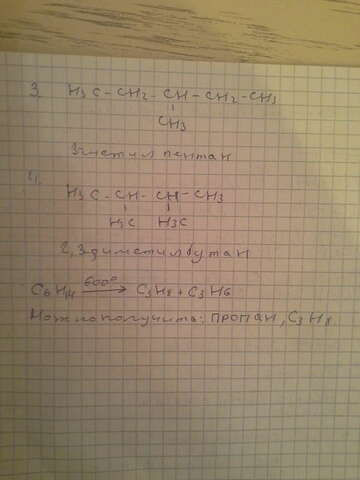 3. H3C - CH2 - CH - CH2 - CH3
CH3
3метил пентан
4.
H3C - CH - CH - CH3
H3C H3C
2,3диметилбутан
C6H14 600° → C3H8 + C3H6
Можно получить: пропан, C3H8